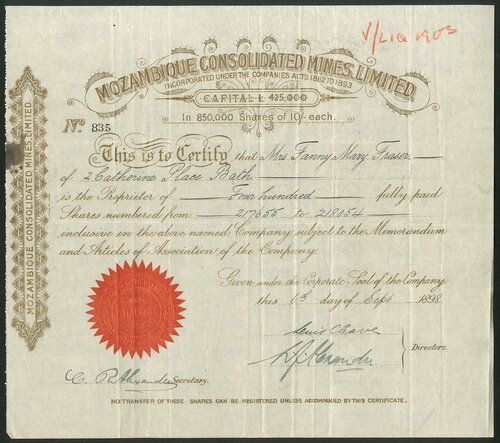 V/LIQ 1903
MOZAMBIQUE CONSOLIDATED MINES, LIMITED.
INCORPORATED UNDER THE COMPANIES ACTS 1862 TO 1893
CAPITAL £ 425,000
In 850,000 Shares of 10/- each.
No. 835
This is to Certify that Mrs Fanny Mary Fraser
of 2 Catherine Place Bath
is the Proprietor of Four hundred fully paid
Shares numbered from 217655 to 218054
inclusive in the above named Company, subject to the Memorandum
and Articles of Association of the Company.
Given under the Corporate Seal of the Company
this 6th day of Sept 1898
Directors.
C. P. Alexander Secretary.
NO TRANSFER OF THESE SHARES CAN BE REGISTERED UNLESS ACCOMPANIED BY THIS CERTIFICATE.
MOZAMBIQUE CONSOLIDATED MINES, LIMITED.